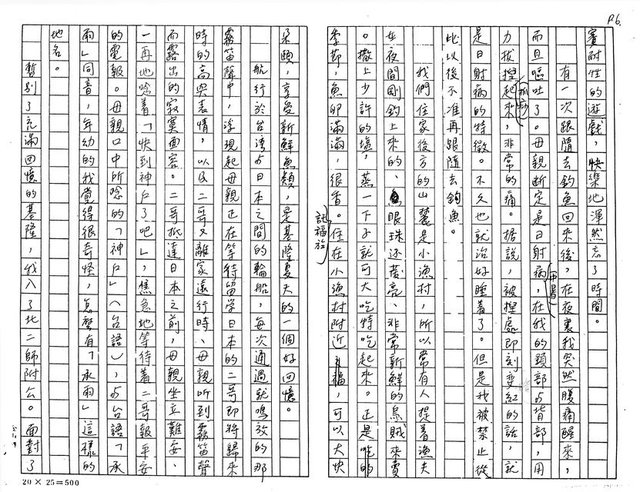 P6.
耐性的遊戲,快樂地渾然忘了時間。
有一次跟隨去釣魚回來後,在夜裏我突然腹痛醒來,
而且嘔吐了。母親斷定是日射病(中暑),在我的頭部与背部,用
力拔捏起來,非常的痛。据說,被捏處即刻變紅的話,就
是日射病的特徵。不久也就治好睡着了。但是我被禁止從
此以後不准再跟隨去釣魚。
我們住家後方的山麓是小漁村,所以常有人提着漁夫
在夜間剛釣上來的、眼珠还蒼亮、非常新鮮的烏賊來賣
。撒上少許的塩,蒸一下子就可大吃特吃起來。正是吃的
季節,魚卵滿滿,很香。託福於住在小漁村附近,可以大快
朵頤,享受新鮮魚類,是基隆夏天的一個好回憶。
航行於台湾与日本之間的輪船,每次通過就鳴放的那
霧笛聲中,浮現起母親正在等待留学日本的二哥即將歸來
時的高興表情,以及二哥又離家遠行時、母親聽到霧笛聲
而露出的寂寞面容。二哥抵達日本之前,母親坐立難安、
一再地唸着「快到神戶了吧」,焦急地等待着二哥報平安
的電報。母親口中所唸的「神戶」(台語),与台語「承
雨」同音,年幼的我覺得很奇怪,怎麼有「承雨」這樣的
地名。
暫別了充滿回憶的基隆,我入了北二師附公。面對了
20 × 25 = 500